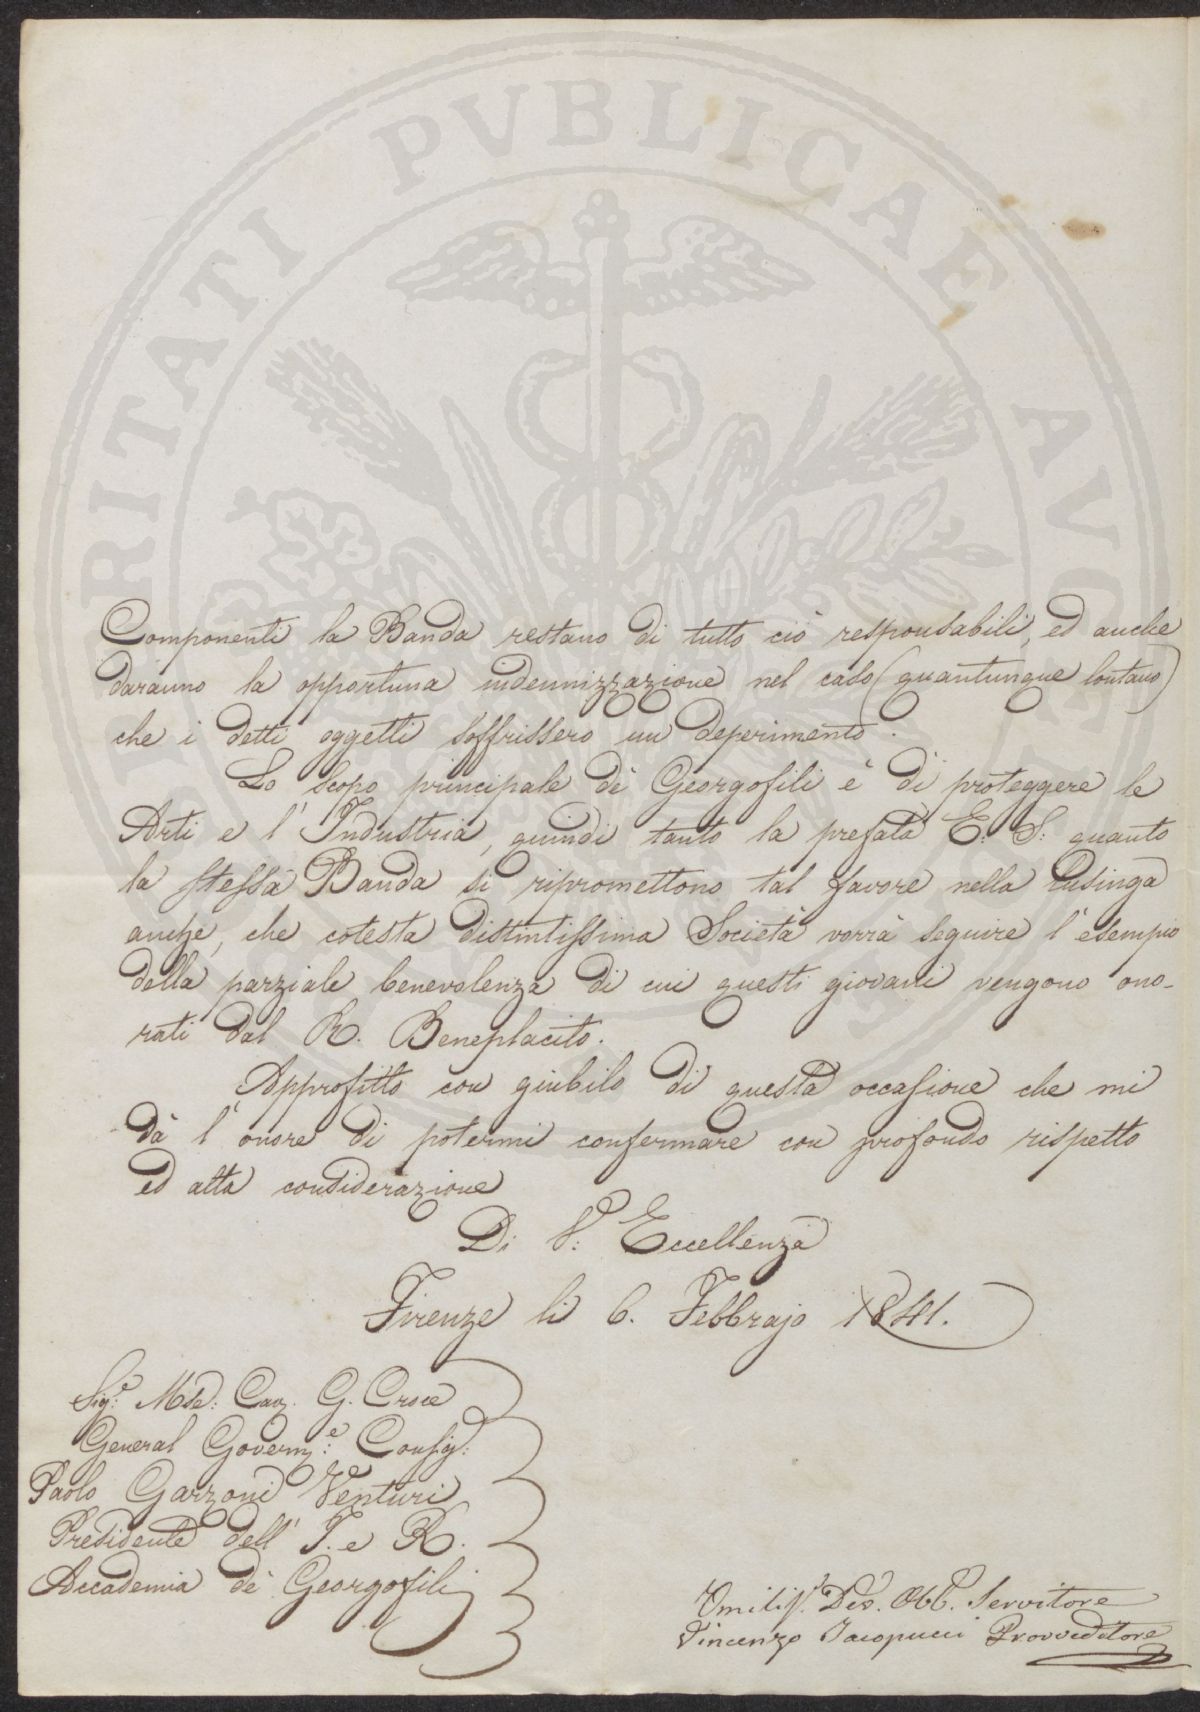 PROSPERITATI PVBLICAE AVGENDAE
Componenti la Banda restano di tutto ciò responsabili, ed anche
daranno la opportuna indennizzazione nel caso (quantunque lontano)
che i detti oggetti soffrissero un deperimento.
Lo scopo principale dè Georgofili è di proteggere le
Arti e l'Industria, quindi tanto la prefata E. S: quanto
la stessa Banda si ripromettono tal favore nella lusinga
anche, che cotesta distintissima Società vorrà seguire l'esempio
della parziale benevolenza di cui questi giovani vengono ono-
rati dal R. Beneplacito.
Approfitto con giubilo di questa occasione che mi
dà l'onore di potermi confermare con profondo rispetto
ed alta considerazione
Di V: Eccellenza
Firenze li 6. Febbrajo 1841.
Sig:e Mse: Cav. G. Croce
General Governe: Consig:
Paolo Garzoni Venturi
Presidente dell' I. e R.
Accademia dè Georgofili
Umilis. Dev. Obb. Servitore
Vincenzo Iacopucci Provveditore